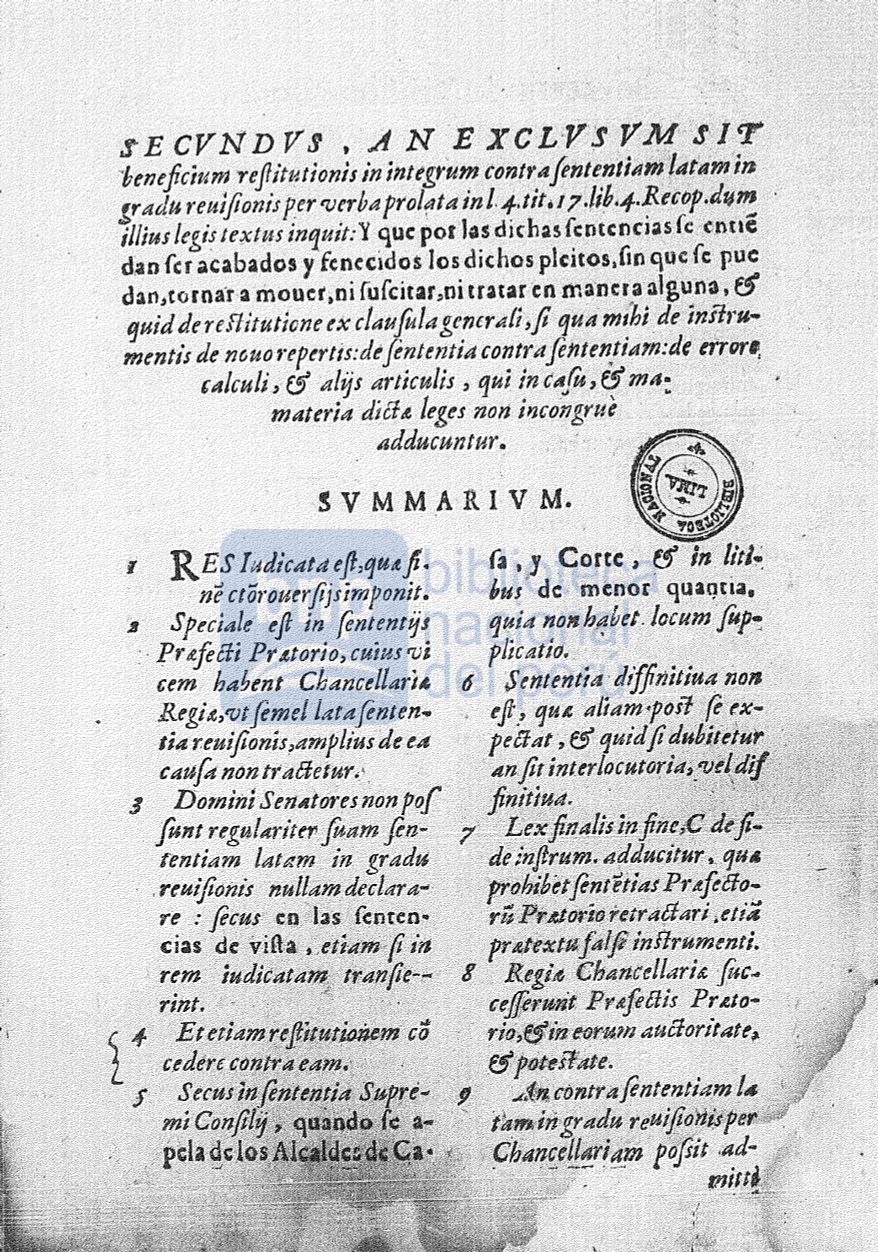 SECVNDVS, AN EXCLVSVM SIT
beneficium reſtitutionis in integrum contra ſententiam latam in
gradu reuiſionis per verba prolata in l. 4. tit. 17. lib. 4. Recop. dum
illius legis textus inquit: Y que por las dichas ſentencias ſe entiẽ
dan ſer acabados y fenecidos los dichos pleitos, ſin que ſe pue
dan, tornar a mouer, ni ſuſcitar, ni tratar en manera alguna, &
quid de reſtitutione ex clauſula generali, ſi qua mihi de inſtru-
mentis de nouo repertis: de ſententia contra ſententiam: de errore
calculi, & alijs articulis, qui in caſu, & ma-
materia dictæ leges non incongruè
adducuntur.
SVMMARIVM.
1 RES Iudicata eſt, quæ fi-
nẽ cõtrouerſijs imponit.
2 Speciale eſt in ſententijs
Præfecti Prætorio, cuius vi
cem habent Chancellariæ
Regiæ, vt ſemel lata ſenten-
tia reuiſionis, amplius de ea
cauſa non tractetur.
3 Domini Senatores non poſ
ſunt regulariter ſuam ſen-
tentiam latam in gradu
reuiſionis nullam declara-
re : ſecus en las ſenten-
cias de viſta, etiam ſi in
rem iudicatam tranſie--
rint.
4 Et etiam reſtitutionem cõ
cedere contra eam.
5 Secus in ſententia Supre-
mi Conſilij, quando ſe a-
pela de los Alcaldes de Ca-
ſa, y Corte, & in liti-
bus de menor quantia,
quia non habet locum ſup-
plicatio.
6 Sententia diffinitiua non
eſt, quæ aliam poſt ſe ex-
pectat, & quid ſi dubitetur
an ſit interlocutoria, vel diſ
finitiua.
7 Lex finalis in fine, C de fi-
de inſtrum. adducitur, quæ
prohibet ſentẽtias Præfecto-
rũ Prætorio retractari, etiã
prætextu falſi inſtrumenti.
8 Regiæ Chancellariæ ſuc-
ceſſerunt Præfectis Præto-
rio, & in eorum auctoritate,
& poteſtate.
9 An contra ſententiam la
tam in gradu reuiſionis per
Chancellariam poſsit ad-
mitti
BIBLIOTECA NACIONAL
LIMA
biblioteca
nacional
del perú